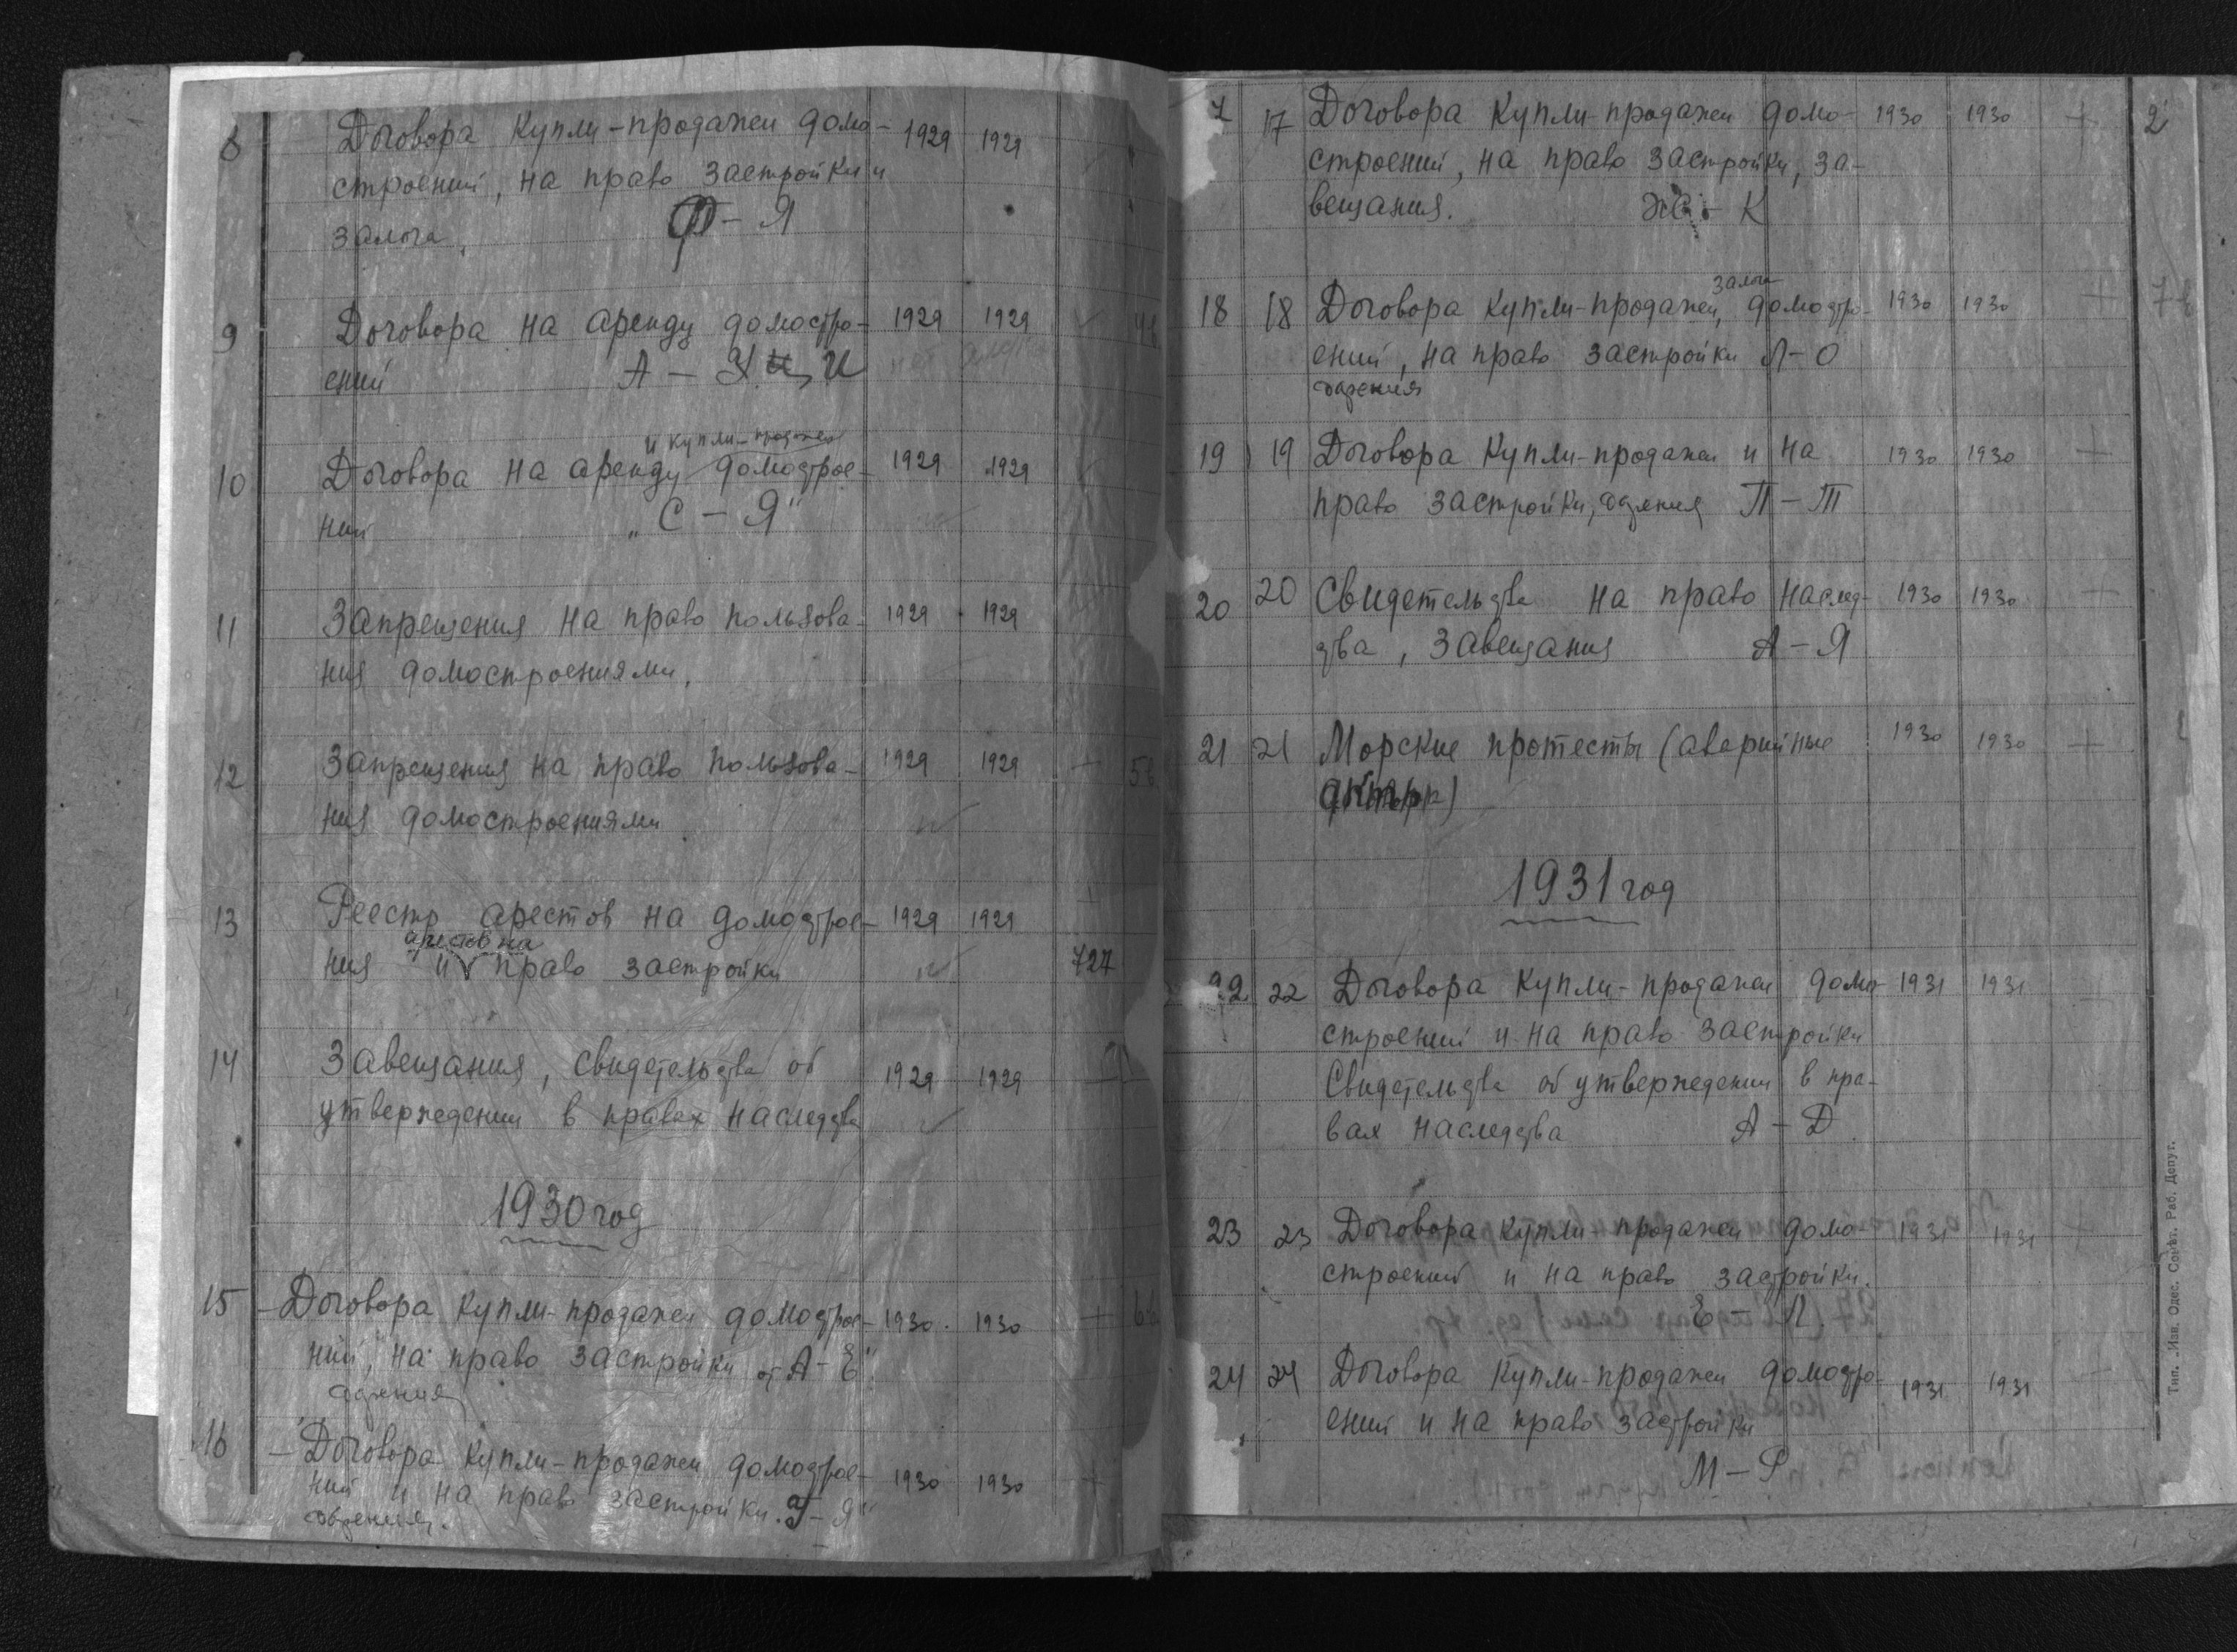 8 Договора купли-продажи домо- 1929 1929
строений, на право застройки и
залога. Ф - Я
9 Договора на аренду домостро- 1929 1929
ений А - И
и купли-продажи
10 Договора на аренду домострое- 1929 1929
ний „С - Я"
11 Запрещения на право пользова- 1929 1929
ния домостроениями.
12 Запрещения на право пользова- 1929 1929 +
ния домостроениями
13 Реестр арестов на домострое- 1929 1929 +
арестов на
ния и право застройки 727
14 Завещания, свидетельства об 1929 1929
утверждении в правах наследства
1930 год
15 - Договора купли-продажи домострое- 1930 1930 +
ний, на право застройки от А - Е"
дарения
16 - Договора купли-продажи домострое- 1930 1930 +
ний и на право застройки.
17 Договора купли-продажи домо- 1930 1930 + 2
строений, на право застройки, за-
вещания. Ж - К
залога
18 18 Договора купли-продажи, домостро- 1930 1930 +
ений, на право застройки Л - О
дарения
19 19 Договора купли-продажи и на 1930 1930 +
право застройки, дарения П - Т
20 20 Свидетельства на право наслед- 1930 1930 +
ства, завещания А - Я
21 21 Морские протесты (аварийные 1930 1930 +
акты)
1931 год
22 22 Договора купли-продажи домо- 1931 1931
строений и на право застройки
Свидетельства об утверждении в пра-
вах наследства А - Д
23 23 Договора купли-продажи домо- 1931 1931
строений и на право застройки.
Е - Л.
24 24 Договора купли-продажи домостро- 1931 1931
ений и на право застройки
М - Р
Тип. „Изв. Одес. Совет. Раб. Депут.